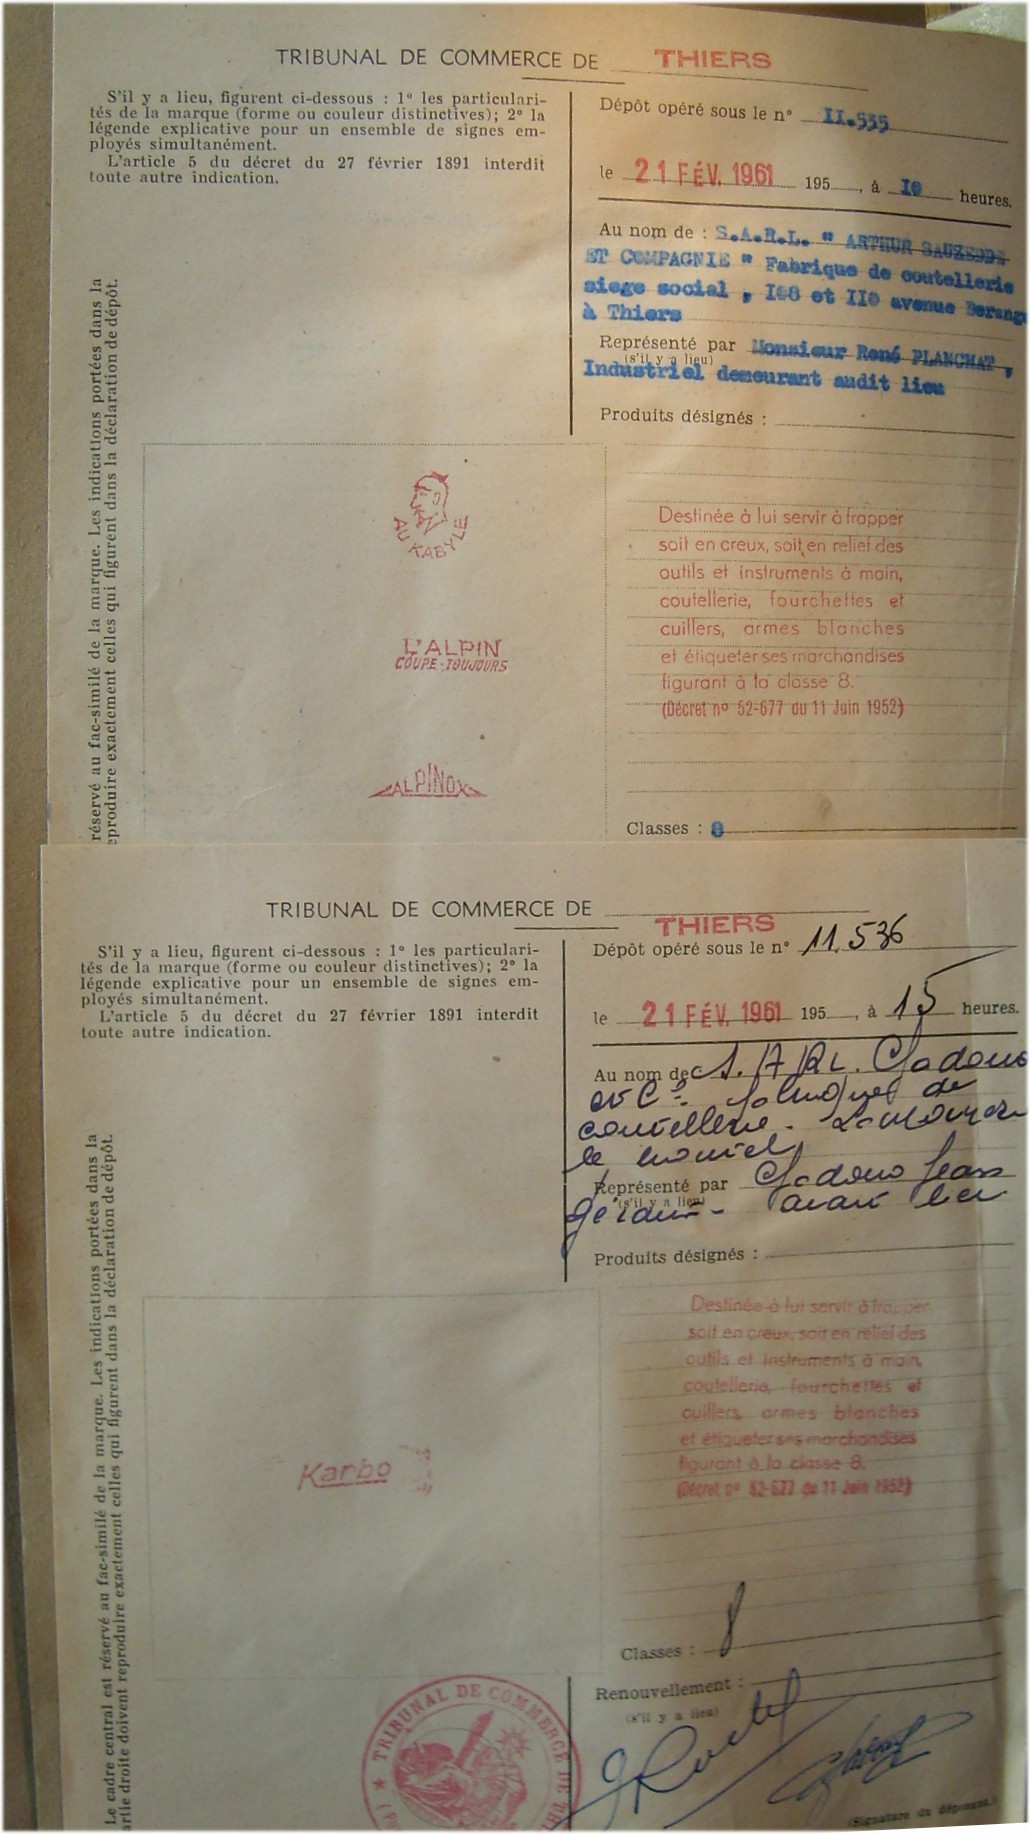 TRIBUNAL DE COMMERCE DE THIERS
S'il y a lieu, figurent ci-dessous : 1º les particulari-
tés de la marque (forme ou couleur distinctives); 2º la
légende explicative pour un ensemble de signes em-
ployés simultanément.
L'article 5 du décret du 27 février 1891 interdit
toute autre indication.
Dépôt opéré sous le nº II.535
le 21 FÉV. 1961 195 , à I0 heures.
Au nom de : S.A.R.L. " ARTHUR SAUZEDDE
ET COMPAGNIE " Fabrique de coutellerie
siege social , I08 et II0 avenue Berange
à Thiers
Représenté par Monsieur René PLANCHAT ,
(s'il y a lieu)
Industriel demeurant audit lieu
Produits désignés :
réservé au fac-similé de la marque. Les indications portées dans la
eproduire exactement celles qui figurent dans la déclaration de dépôt.
AU KABYLE
L'ALPIN
COUPE-TOUJOURS
ALPINOX
Destinée à lui servir à frapper
soit en creux, soit en relief des
outils et instruments à main,
coutellerie, fourchettes et
cuillers, armes blanches
et étiqueter ses marchandises
figurant à la classe 8.
(Décret nº 52-677 du 11 Juin 1952)
Classes : 8
TRIBUNAL DE COMMERCE DE THIERS
S'il y a lieu, figurent ci-dessous : 1º les particulari-
tés de la marque (forme ou couleur distinctives); 2º la
légende explicative pour un ensemble de signes em-
ployés simultanément.
L'article 5 du décret du 27 février 1891 interdit
toute autre indication.
Dépôt opéré sous le nº 11.536
le 21 FÉV. 1961 195 , à 15 heures.
Au nom de S.A.R.L.
et Cie de
coutellerie.
le
Représenté par
(s'il y a lieu)
Gérant
Produits désignés :
Le cadre central est réservé au fac-similé de la marque. Les indications portées dans la
artie droite doivent reproduire exactement celles qui figurent dans la déclaration de dépôt.
Karbo
Destinée à lui servir à frapper
soit en creux, soit en relief des
outils et instruments à main,
coutellerie, fourchettes et
cuillers, armes blanches
et étiqueter ses marchandises
figurant à la classe 8.
(Décret nº 52-677 du 11 Juin 1952)
Classes : 8
Renouvellement :
(s'il y a lieu)
TRIBUNAL DE COMMERCE DE
(Signature du déposant.)